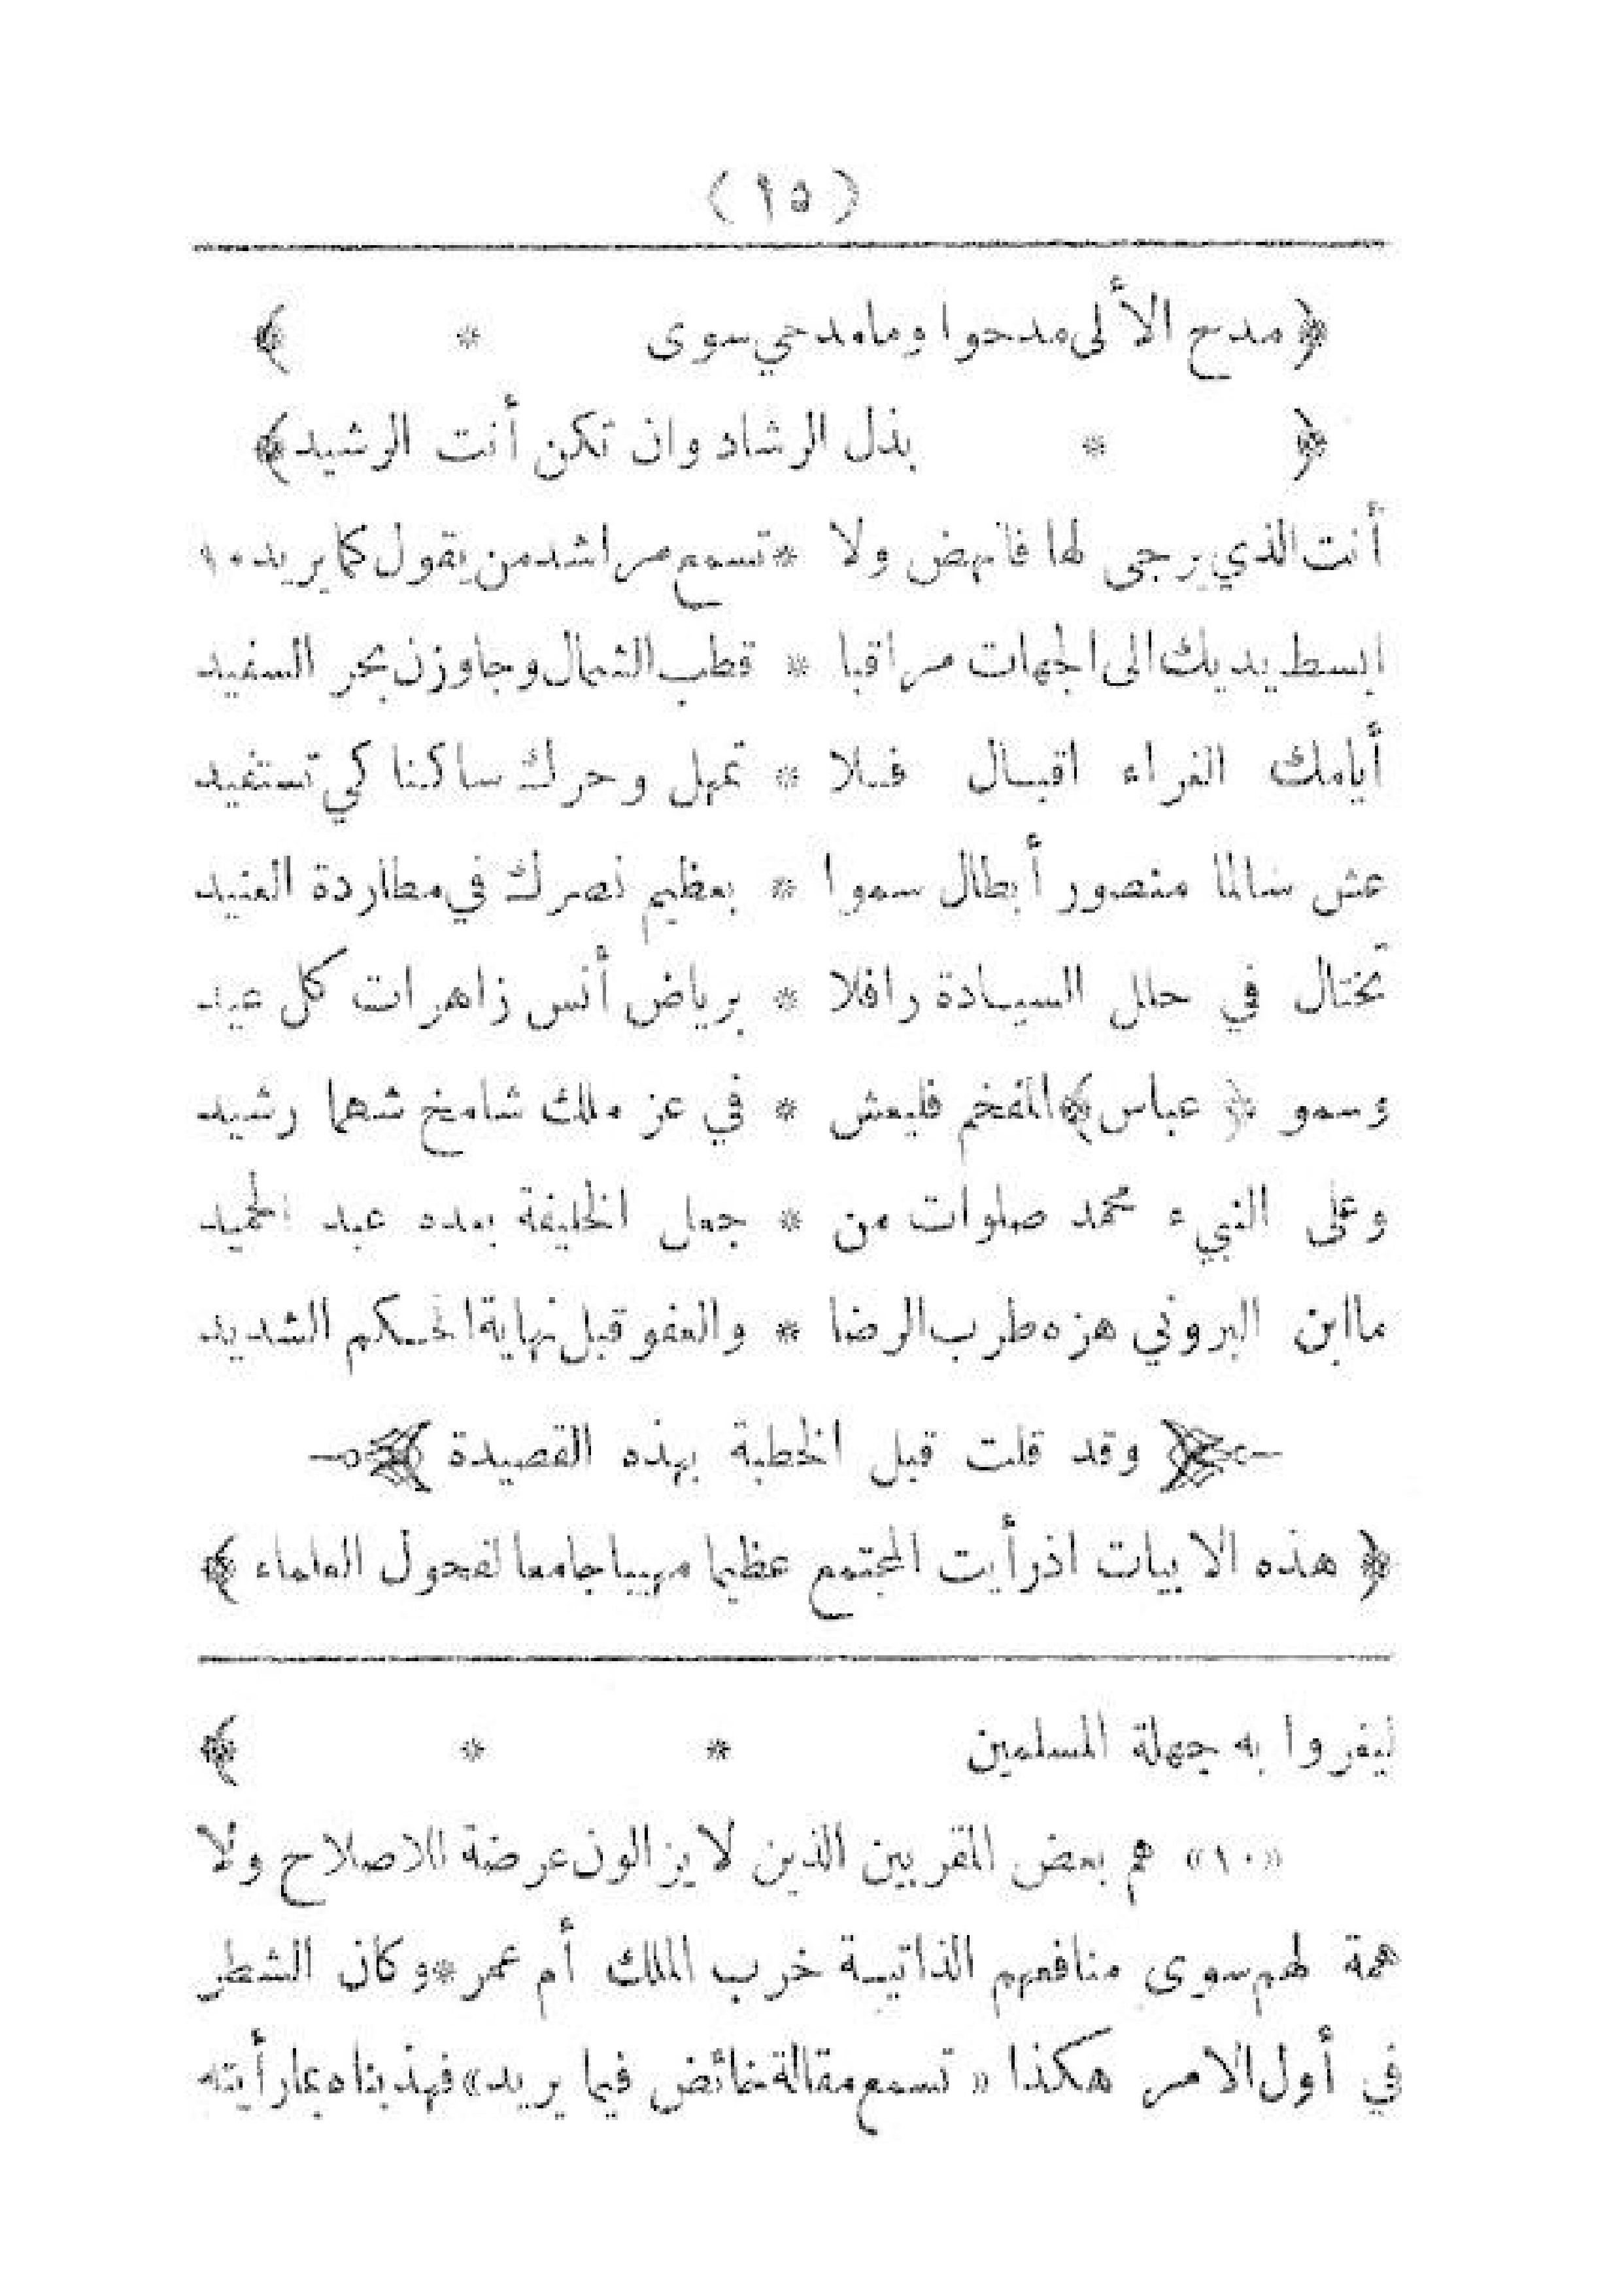 ( ١٥ )
﴿ مدح الألى مدحوا وما مدحي سوى * ﴾
﴿ * بذل الرشاد وان تكن أنت الرشيد ﴾
أنت الذي يرجى لها فانهض ولا * تسمع مراشد من يقول كما يريد ١٠
ابسط يديك الى الجهات مراقبا * قطب الشمال وجاوزن بحر السفيد
أيامك الغراء اقبال فلا * تمهل وحرك ساكنا كي تستفيد
عش سالما منصور أبطال سموا * بعظيم نصرك في مطاردة العنيد
تختال في حلل السيادة رافلا * برياض أنس زاهرات كل عيد
وسمو ﴿ عباس ﴾ المفخم فليعش * في عز ملك شامخ شهما رشيد
وعلى النبيء محمد صلوات من * جعل الخليفة بعده عبد الحميد
ما ابن البروني هزه طرب الرضا * والعفو قبل نهاية الحكم الشديد
﴿ وقد قلت قبل الخطبة بهذه القصيدة ﴾
﴿ هذه الابيات اذ رأيت المجتمع عظيما مهيبا جامعا لفحول العلماء ﴾
ليغروا به جهلة المسلمين * * ﴾
«١٠» هم بعض المقربين الذين لا يزالون عرضة للاصلاح ولا
همة لهم سوى منافعهم الذاتية خرب الملك أم عمر * وكان الشطر
في أول الامر هكذا « تسمع مقالة خائض فيما يريد » فهذبناه بما رأيته